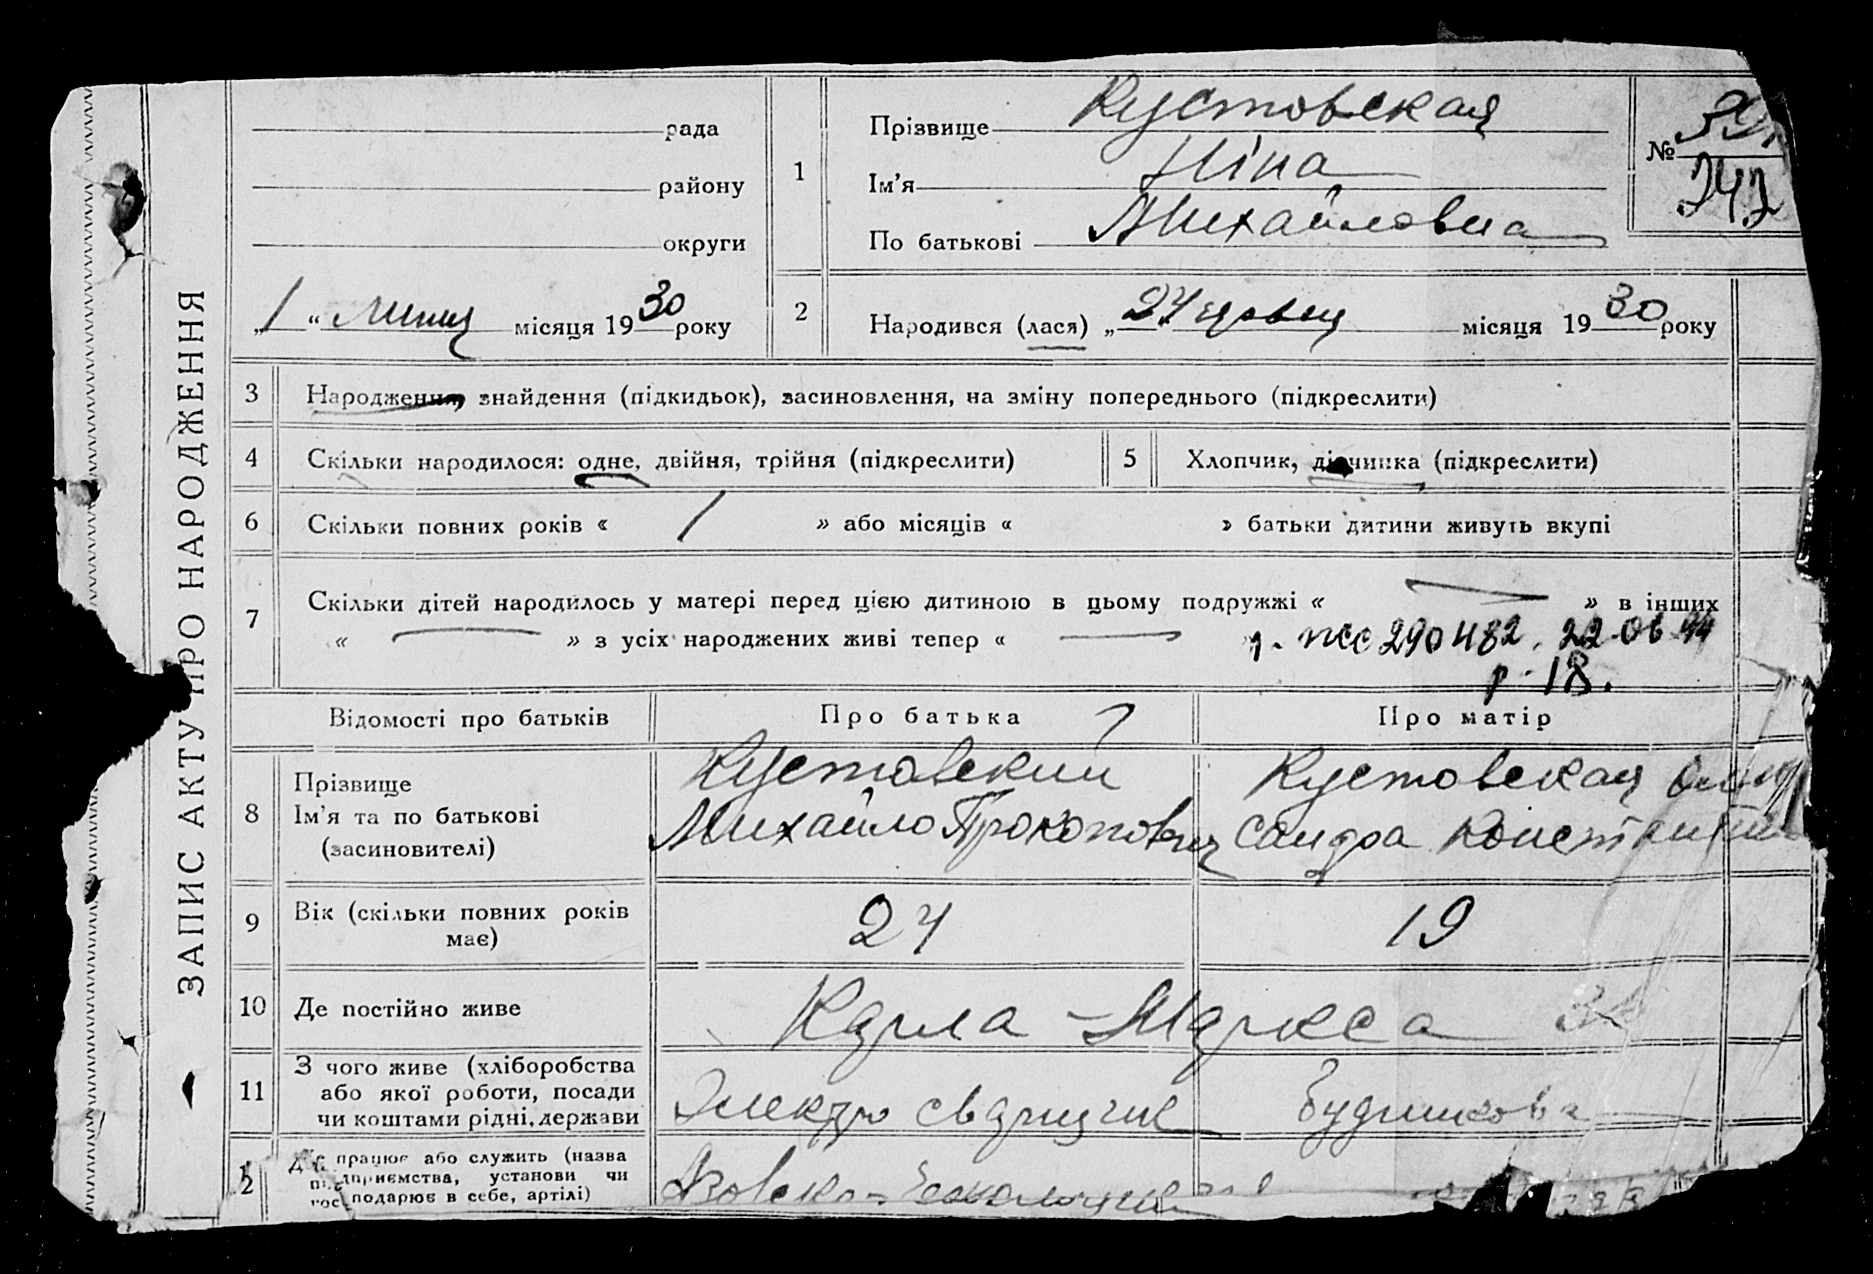 ЗАПИС АКТУ ПРО НАРОДЖЕННЯ
рада
району
округи
„ 1 “ липця місяця 1930 року
1
Прізвище Кустовская
Ім’я Ніна
По батькові Михайловна
№
242
2
Народився (лася) „ 24 червця місяця 1930 року
3 Народження, знайдення (підкидьок), засиновлення, на зміну попереднього (підкреслити)
4 Скільки народилося: одне, двійня, трійня (підкреслити)
5 Хлопчик, дівчинка (підкреслити)
6 Скільки повних років « 1 » або місяців « » батьки дитини живуть вкупі
7 Скільки дітей народилось у матері перед цією дитиною в цьому подружжі « — » в інших
« — » з усіх народжених живі тепер « —
290482. 22-06 44
р. 18.
Відомості про батьків Про батька Про матір
8
Прізвище
Ім’я та по батькові
(засиновителі)
Кустовский
Михайло Прокопович
Кустовская
сандра
9 Вік (скільки повних років
має)
24 19
10 Де постійно живе Карла - Маркса
11
З чого живе (хліборобства
або якої роботи, посади
чи коштами рідні, держави
Электро сварщик
12
Де працює або служить (назва
підприємства, установи чи
господарює в себе, артілі)